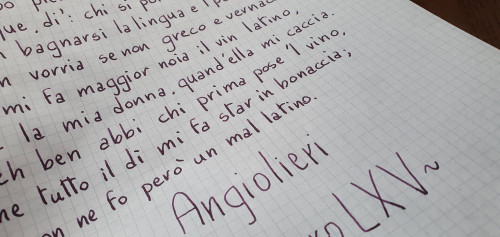 lue. di': chi si po
bagnarsi la lingua e l p
vorria se non greco e vernac
mi fa maggior noia il vin latino,
la mia donna. quand'ella mi caccia.
eh ben abbi chi prima pose 'l vino,
he tutto il dì mi fa star in bonaccia;;
on ne fo però un mal latino.
Angiolieri
LXV~